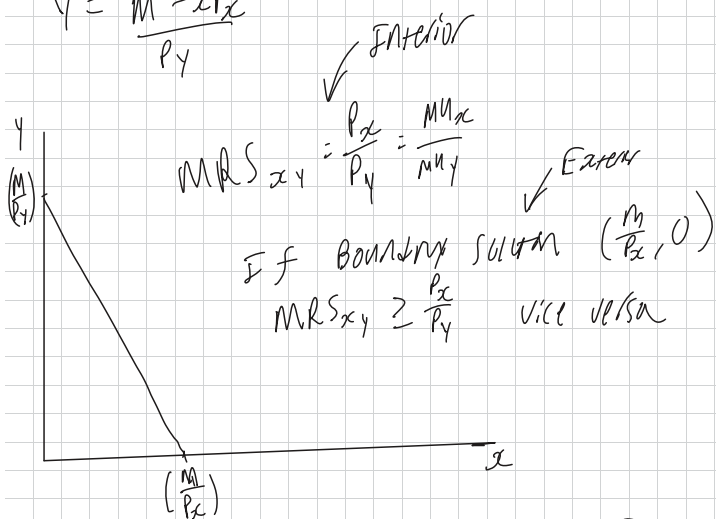 Y = M - xPx / PY
Interior
Y
MRS xy = Px / PY = MUx / MUy
(M / PY)
If Boundry solutn (m / Px, 0)
MRSxy ≥ Px / Py vice versa
x
(M / Px)